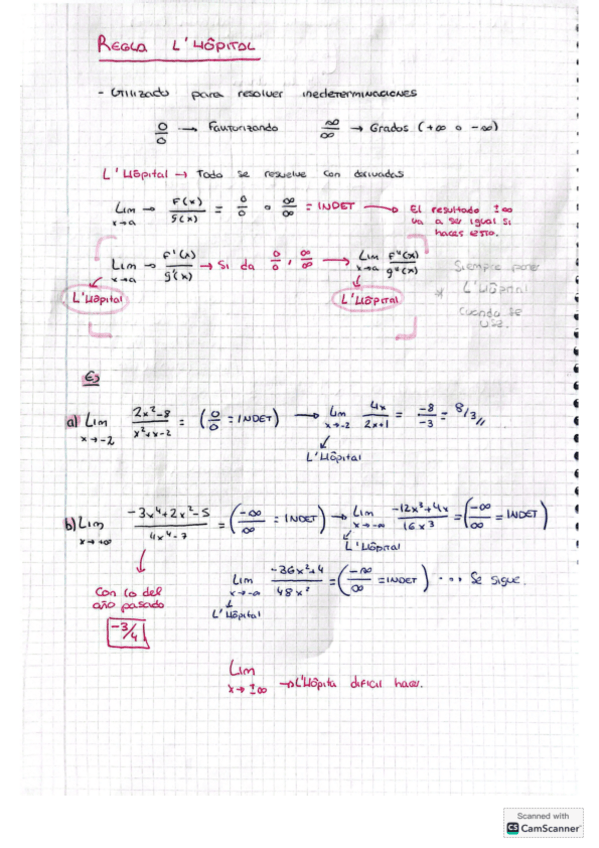 REGLA L'HÔPITAL
- Utilizado para resolver inedeterminaciones
0/0 → Fautorizando ∞/∞ → Grados (+∞ o -∞)
L'Hôpital → Todo se resuelve con derivadas
Lim x→a → F(x)/g(x) = 0/0 o ∞/∞ = INDET → El resultado ±∞
va a ser igual si
haces esto.
Lim x→a → F'(x)/g'(x) → Si da 0/0, ∞/∞ → Lim x→a F''(x)/g''(x)
L'Hôpital
L'Hôpital
Siempre poner
* L'Hôpital
cuando se
use.
Ej
a) Lim x→-2 2x²-8/x²+x-2 = (0/0 = INDET) → Lim x→-2 4x/2x+1 = -8/-3 = 8/3 //
L'Hôpital
b) Lim x→+∞ -3x⁴+2x²-5/4x⁴-7 = (-∞/∞ = INDET) → Lim x→-∞ -12x³+4x/16x³ = (-∞/∞ = INDET)
L'Hôpital
Con lo del
año pasado
-3/4
Lim x→-∞ -36x²+4/48x² = (-∞/∞ = INDET) ... Se sigue.
L'Hôpital
Lim x→±∞ → L'Hôpita dificil hacer.
Scanned with
CS CamScanner